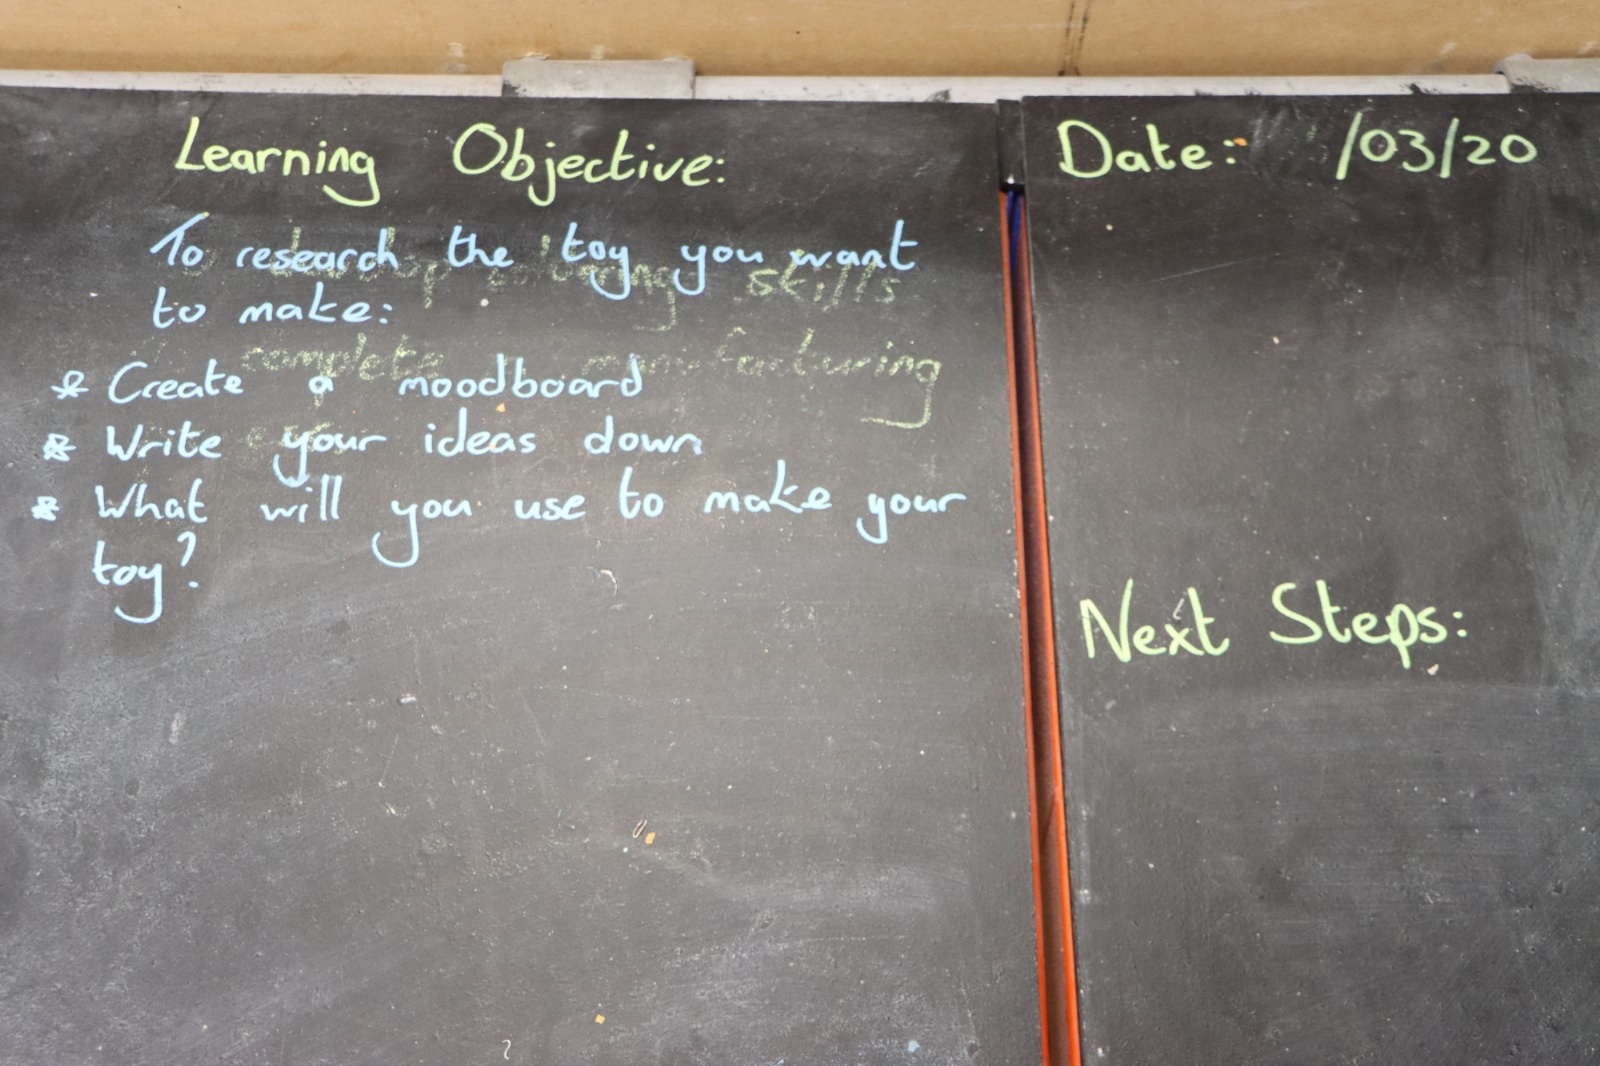 Learning Objective:
To research the toy you want
to make:
* Create a moodboard
* Write your ideas down
* What will you use to make your
toy?
skills
complete manufacturing
Date: /03/20
Next Steps: